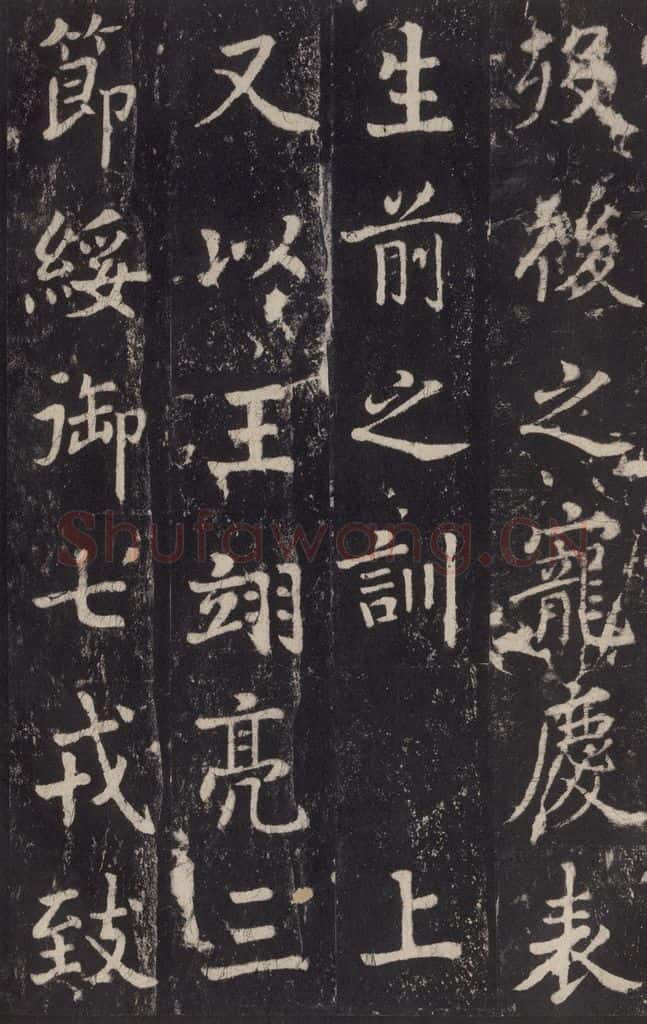 殁後之寵慶表
生前之訓上
又以王翊亮三
節綏御七戎致
Shufawang.CN